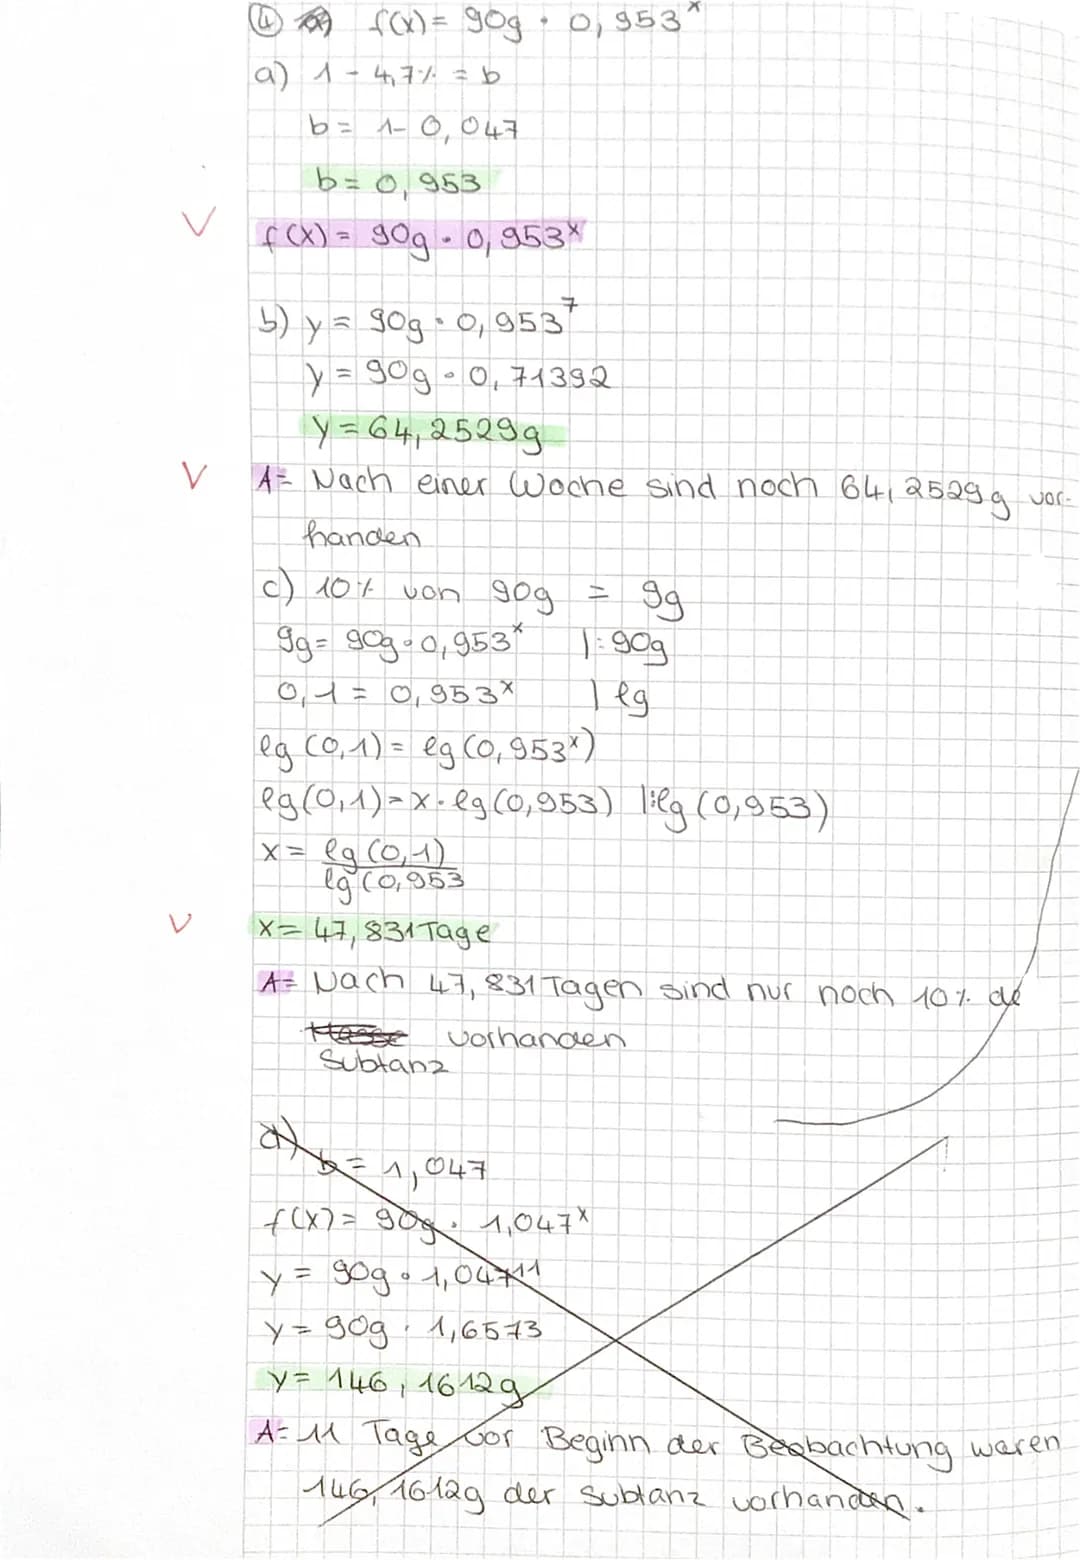 ④ f(x) = 90g · 0,953ˣ
a) 1 - 4,7% = b
b = 1 - 0,047
b = 0,953
f(x) = 90g · 0,953ˣ
b) y = 90g · 0,953⁷
y = 90g · 0,71392
y = 64,2529g
A= Nach einer Woche sind noch 64,2529g vor-
handen
c) 10% von 90g = 9g
9g = 90g · 0,953ˣ |:90g
0,1 = 0,953ˣ | lg
lg (0,1) = lg (0,953ˣ)
lg (0,1) = x · lg (0,953) |:lg (0,953)
x = lg (0,1)
lg (0,953
x = 47,831 Tage
A= Nach 47,831 Tagen sind nur noch 10% de
Masse vorhanden
Subtanz
d) b = 1,047
f(x) = 90g · 1,047ˣ
y = 90g · 1,047¹¹
y = 90g · 1,6573
y = 146,1612g
A= 11 Tage vor Beginn der Beobachtung waren
146,1612g der Subtanz vorhanden.